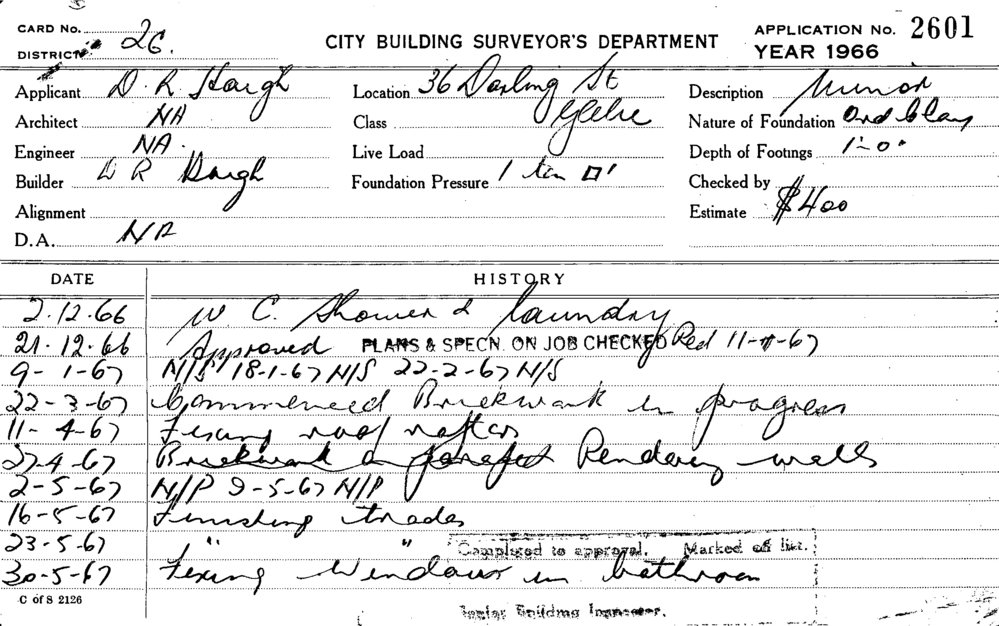 CARD NO. 26. CITY BUILDING SURVEYOR'S DEPARTMENT APPLICATION NO. 2601
DISTRICT YEAR 1966
Applicant D. R. Haigh Location 36 Darling St Description Minor
Architect NA Class Glebe Nature of Foundation Ord Clay
Engineer NA. Live Load Depth of Footings 1'-0"
Builder D R Haigh Foundation Pressure 1 ton □' Checked by
Alignment Estimate $400
D.A. NR
DATE HISTORY
2.12.66 W C. Shower & laundry
21.12.66 Approved PLANS & SPECN. ON JOB CHECKED Red 11-4-67
9-1-67 N/S 18-1-67 N/S 22-2-67 N/S
22-3-67 Commenced Brickwork in progress
11-4-67 Fixing roof rafters
27-4-67 Brickwork parapet Rendering walls
2-5-67 N/P 9-5-67 N/P
16-5-67 Finishing trades
23-5-67 " " Completed to approval. Marked off list.
30-5-67 Fixing Windows in bathroom
C of S 2126
Senior Building Inspector.